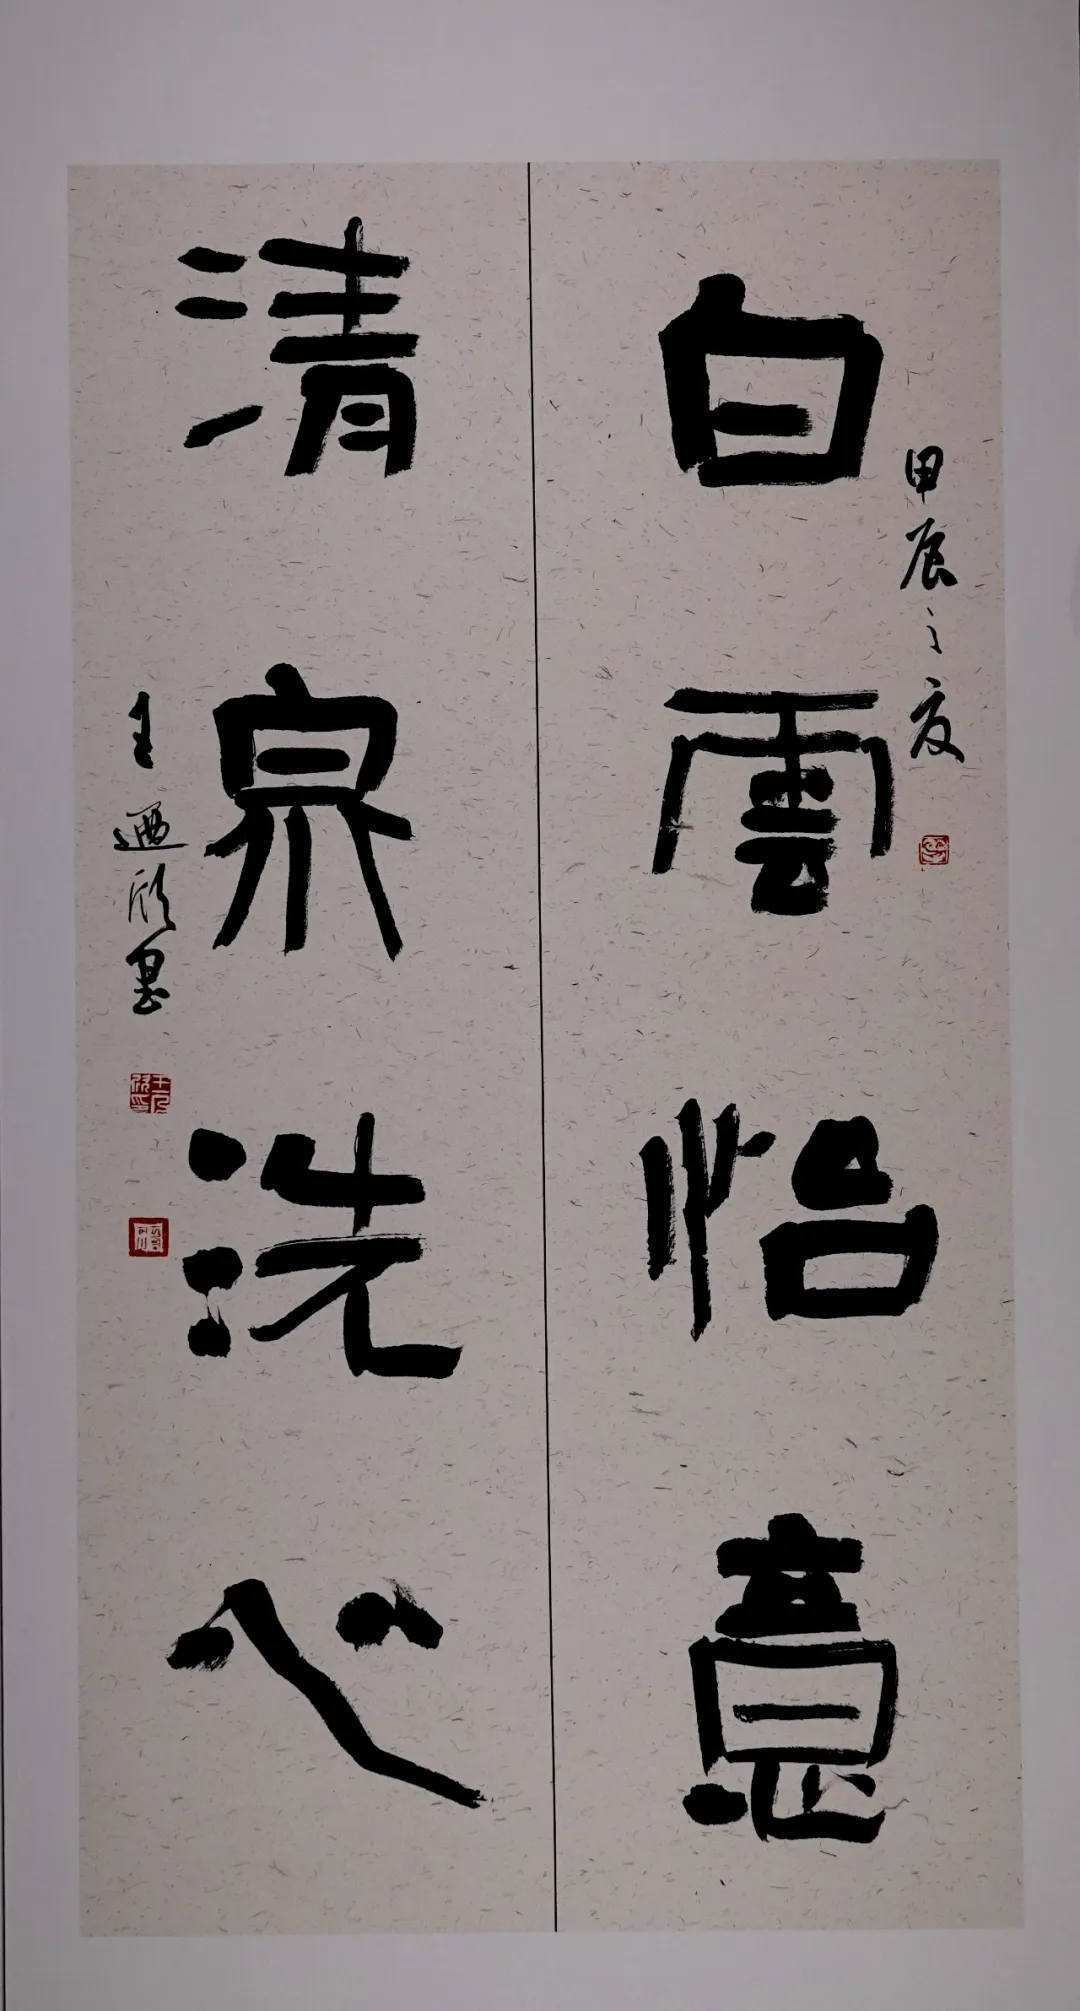 白雲怡意
甲辰之夏
清泉洗心
王廼欣書